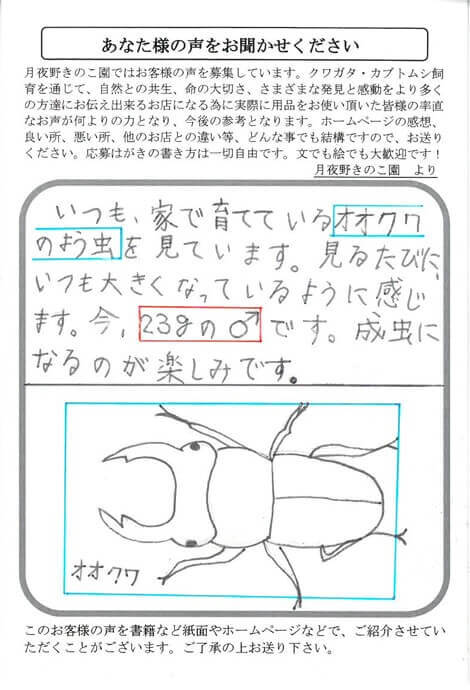 あなた様の声をお聞かせください
月夜野きのこ園ではお客様の声を募集しています。クワガタ・カブトムシ飼
育を通じて、自然との共生、命の大切さ、さまざまな発見と感動をより多く
の方達にお伝え出来るお店になる為に実際に用品をお使い頂いた皆様の率直
なお声が何よりの力となり、今後の参考となります。ホームページの感想、
良い所、悪い所、他のお店との違い等、どんな事でも結構ですので、お送り
ください。応募はがきの書き方は一切自由です。文でも絵でも大歓迎です！
月夜野きのこ園　より
いつも、家で育てているオオクワ
のよう虫を見ています。見るたびに、
いつも大きくなっているように感じ
ます。今、23gの♂です。成虫に
なるのが楽しみです。
オオクワ
このお客様の声を書籍など紙面やホームページなどで、ご紹介させてい
ただくことがございます。ご了承の上お送り下さい。